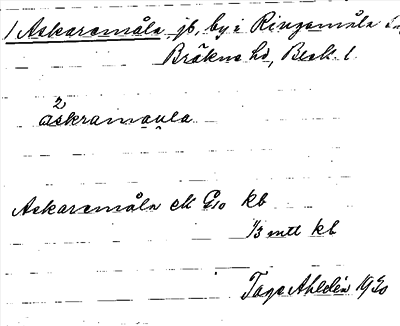 1 Askaremåla, jb, by i Ringamåla
Bräkne hd, Blek. l.
2
askramåula
Askaremåla ek G10 kb
1/3 mtl kb
Tage Ahldén 1930